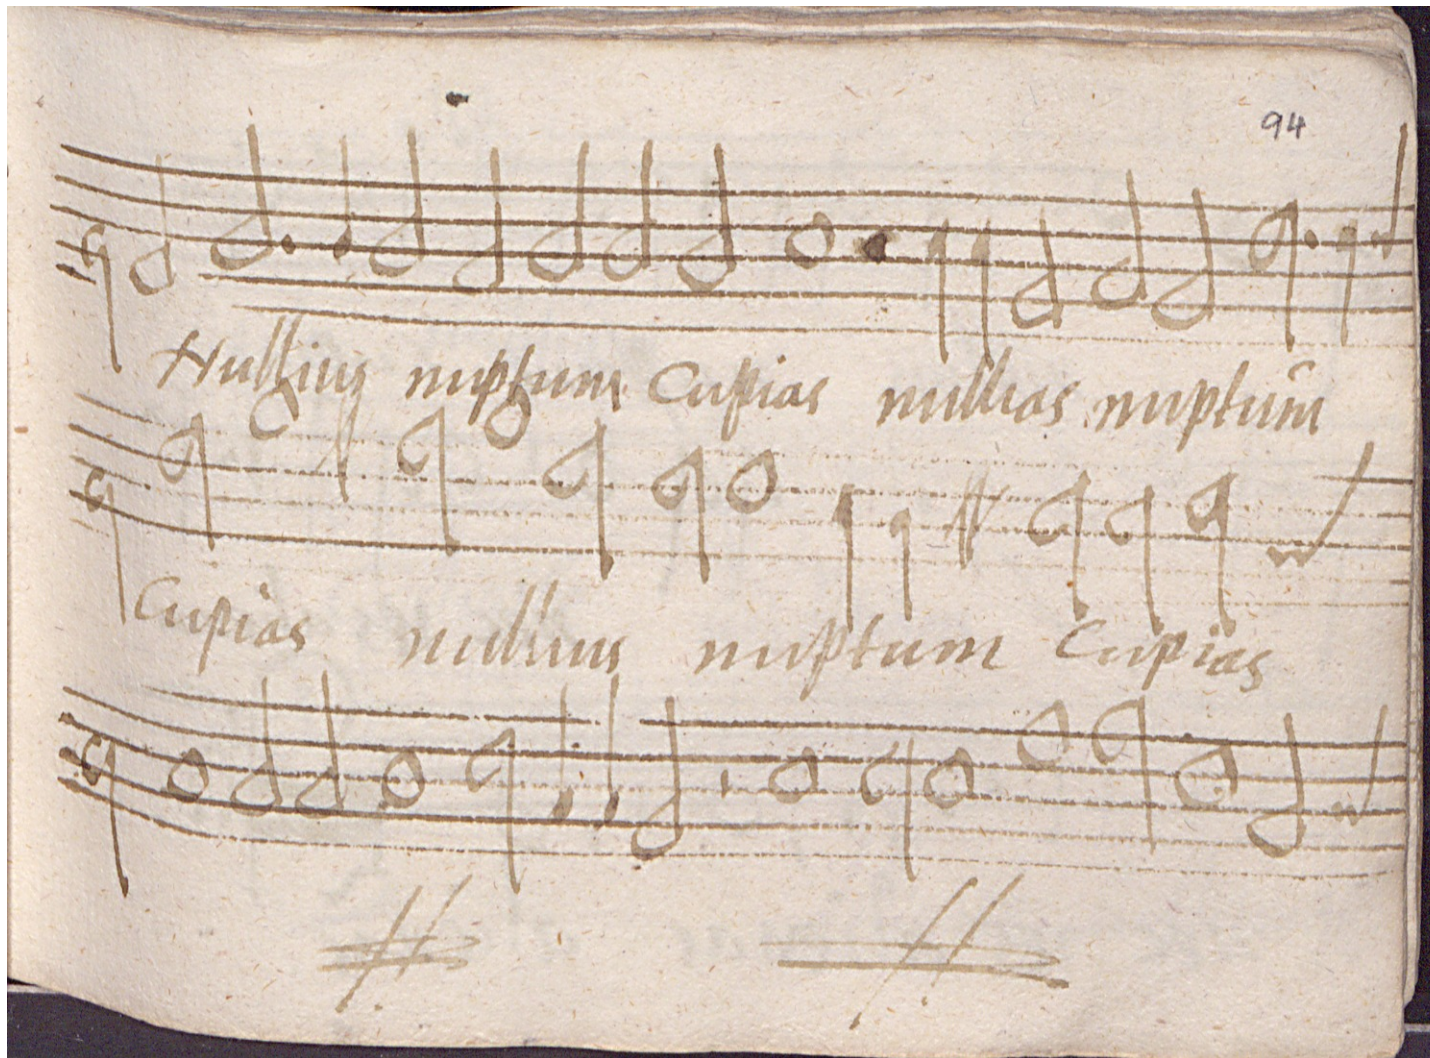 94
Nullius nuptum Cupias nullias nuptum
Cupias nullius nuptum Cupias